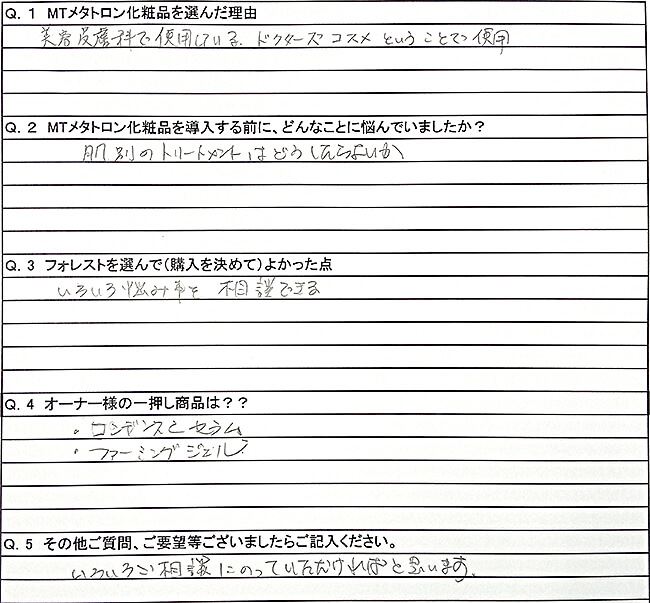 Q. 1 MTメタトロン化粧品を選んだ理由
美容皮膚科で使用している。ドクターズコスメということで使用
Q. 2 MTメタトロン化粧品を導入する前に、どんなことに悩んでいましたか？
肌別のトリートメントはどうしたらよいか
Q. 3 フォレストを選んで（購入を決めて）よかった点
いろいろ悩み事を相談できる
Q. 4 オーナー様の一押し商品は？？
・セラム
・ファーミングジェル
Q. 5 その他ご質問、ご要望等ございましたらご記入ください。
いろいろご相談にのっていただければと思います。